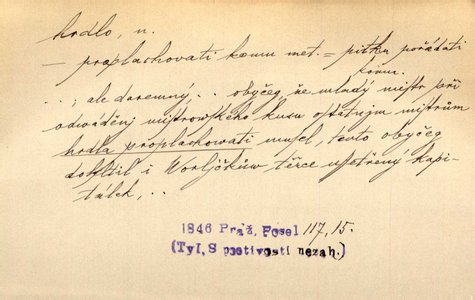 hrdlo, n.
— proplachovati komu met. = pitku pořádati
komu.
..; ale daremný .. obyčeg, že mladý mistr při
odwáděnj mistrowského kusu ostatnjm mistrům
hrdla proplachovati musel, tento obyčeg
i Worljčkůw těrce ušetřený kapi-
tálek, ..
1846 Praž. Posel 117, 15.
(Tyl, S poctivostí nezah.)